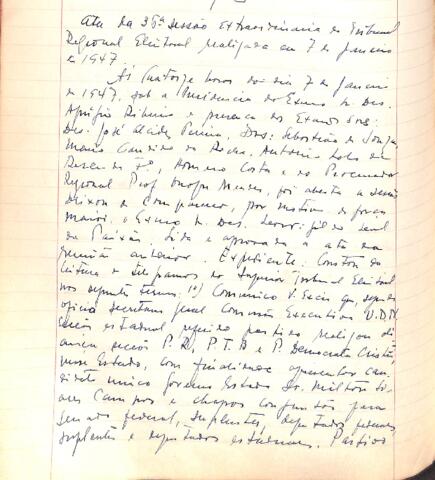 Ata da 36ª sessão extraordinaria do Tribunal
Regional Eleitoral realizada em 7 de Janeiro
de 1947.
Ás quatorze horas do dia 7 de Janeiro
de 1947, sob a Presidencia do Exmo. Sr. Des.
Aprigio Ribeiro e presença dos Exmos. Srs:
Des. José Alcides Pereira, Drs: Sebastião de Souza,
Mario
da Rocha, Antonio
Resende, Homero Costa e do Procurador
Regional Prof. Onofre Mendes, foi aberta a sessão.
Deixou de comparecer, por motivo de força
maior, o Exmo. Sr. Des.
da Paixão. Lida e aprovada a ata da
reunião anterior. Expediente: Constou da
leitura de telegramas do Superior Tribunal Eleitoral
nos seguintes termos: 1º) Comunico V. Excia que, segundo
oficio secretario geral Comissão Executiva U.D.N.
secção estadual, aquele partido realizou
aliança secção P.R., P.T.B e P. Democrata Cristão,
nesse Estado, com finalidade apresentar can
didato unico governo Estado Dr. Milton So
ares Campos e chapas conjuntas para
Senado federal, suplentes, deputados federaes,
suplentes e deputados estaduaes. Partido